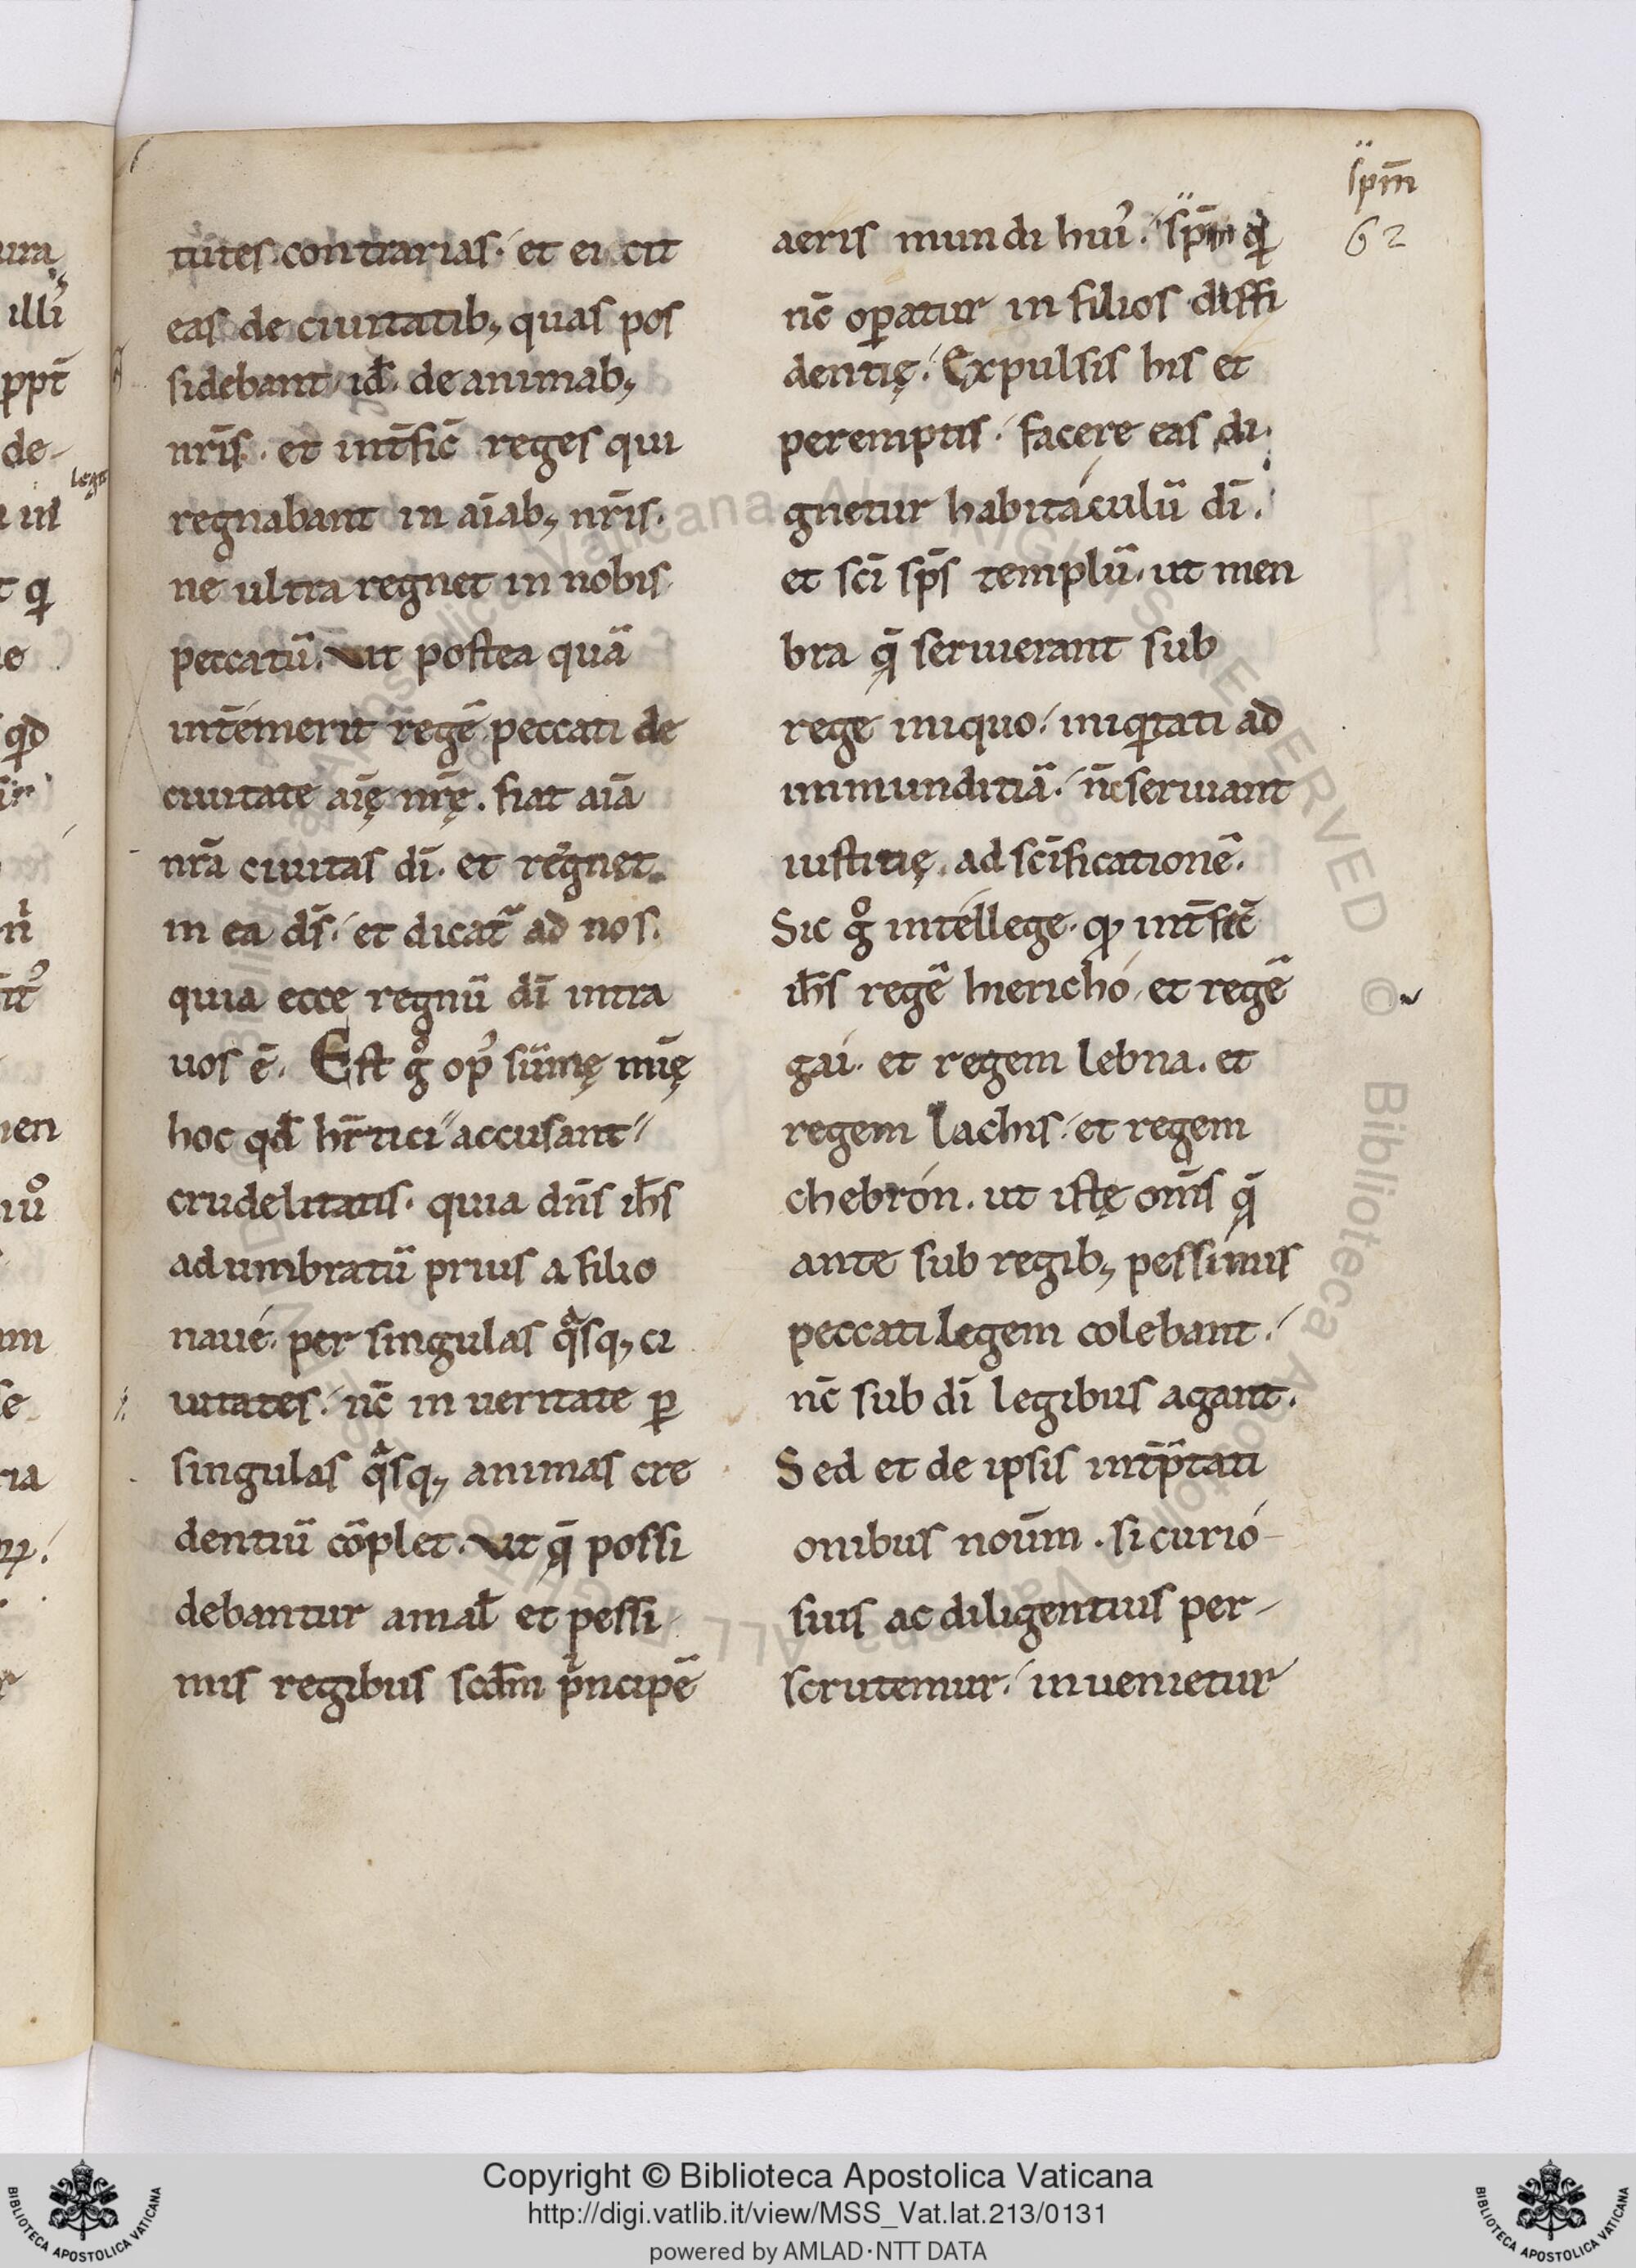 sp̄m
62
tutes contrarias. et eicit
eas de ciuitatib; quas pos
sidebant id̄. de animab;
nr̄is. et int̄fic̄ reges qui
regnabant in aīab; nr̄is.
ne ultra regnet in nobis
peccatū. Vt postea quā
int̄emerit regē peccati de
ciuitate aīę nr̄ę. fiat aīa
nr̄a ciuitas dī. et regnet
in ea ds̄. et dicat̄ ad nos.
quia ecce regnū dī intra
uos ē. Est gͦ opꝰ sūmę mīę
hoc qd̄ hr̄tici accusant
crudelitatis. quia dn̄s ih̄s
adumbratū prius a filio
naue. per singulas qͣsq; ci
uitates. nc̄ in ueritate ꝑ
singulas qͣsq; animas cre
dentiū cōplet. Vt q̄ possi
debantur a mał et pessi
mis regibus scdm̄ pͥncipē
aeris mundi huiꝰ. sp̄m qi
nc̄ oꝑatur in filios diffi
dentię. Expulsis his et
peremptis. facere eas di
gnetur habitaculū dī.
et sc̄i sp̄s templū. ut men
bra q̄ seruierant sub
rege iniquo. iniqͥtati ad
immunditiā. nc̄ seruiant
iustitię. ad sc̄ificationē.
Sic gͦ intellege. qͦ int̄fic̄
ih̄s regē hiericho. et regē
gai. et regem lebna. et
regem lachis. et regem
chebron. ut istę om̄s q̄
ante sub regib; pessimis
peccati legem colebant.
nc̄ sub dī legibus agant.
Sed et de ipsis int̄p̄tati
onibus noūm. si curio-
sius ac diligentius per-
scrutemur. inuenietur
Copyright © Biblioteca Apostolica Vaticana
http://digi.vatlib.it/view/MSS_Vat.lat.213/0131
powered by AMLAD·NTT DATA
BIBLIOTECA APOSTOLICA VATICANA
BIBLIOTECA APOSTOLICA VATICANA